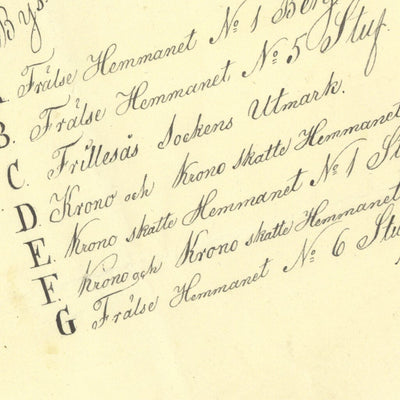 Bys
Frälse Hemmanet No 1 Berg
B. Frälse Hemmanet No 5 Stuf
C. Frillesås Sockens Utmark.
D. Krono och Krono skatte Hemmanet
E. Krono skatte Hemmanet No 1 St
F. Krono och Krono skatte Hemmanet
G Frälse Hemmanet No 6 Stu